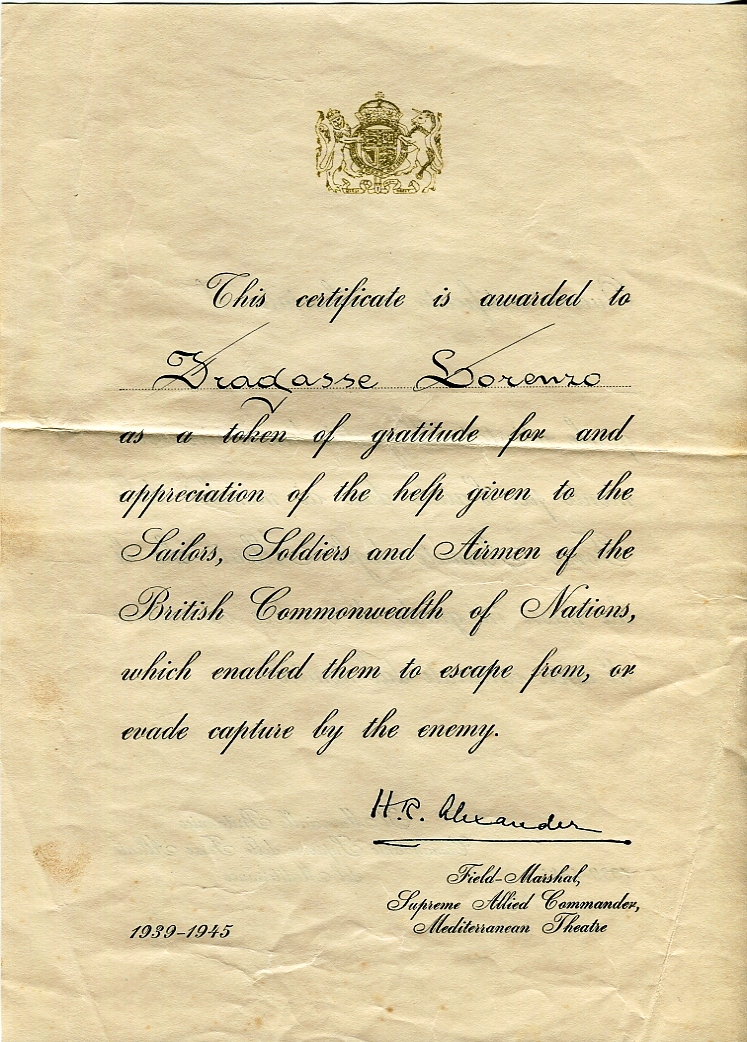 This certificate is awarded to
Dragasse Lorenzo
as a token of gratitude for and
appreciation of the help given to the
Sailors, Soldiers and Airmen of the
British Commonwealth of Nations,
which enabled them to escape from, or
evade capture by the enemy.
H.R. Alexander
Field-Marshal,
Supreme Allied Commander,
Mediterranean Theatre
1939-1945